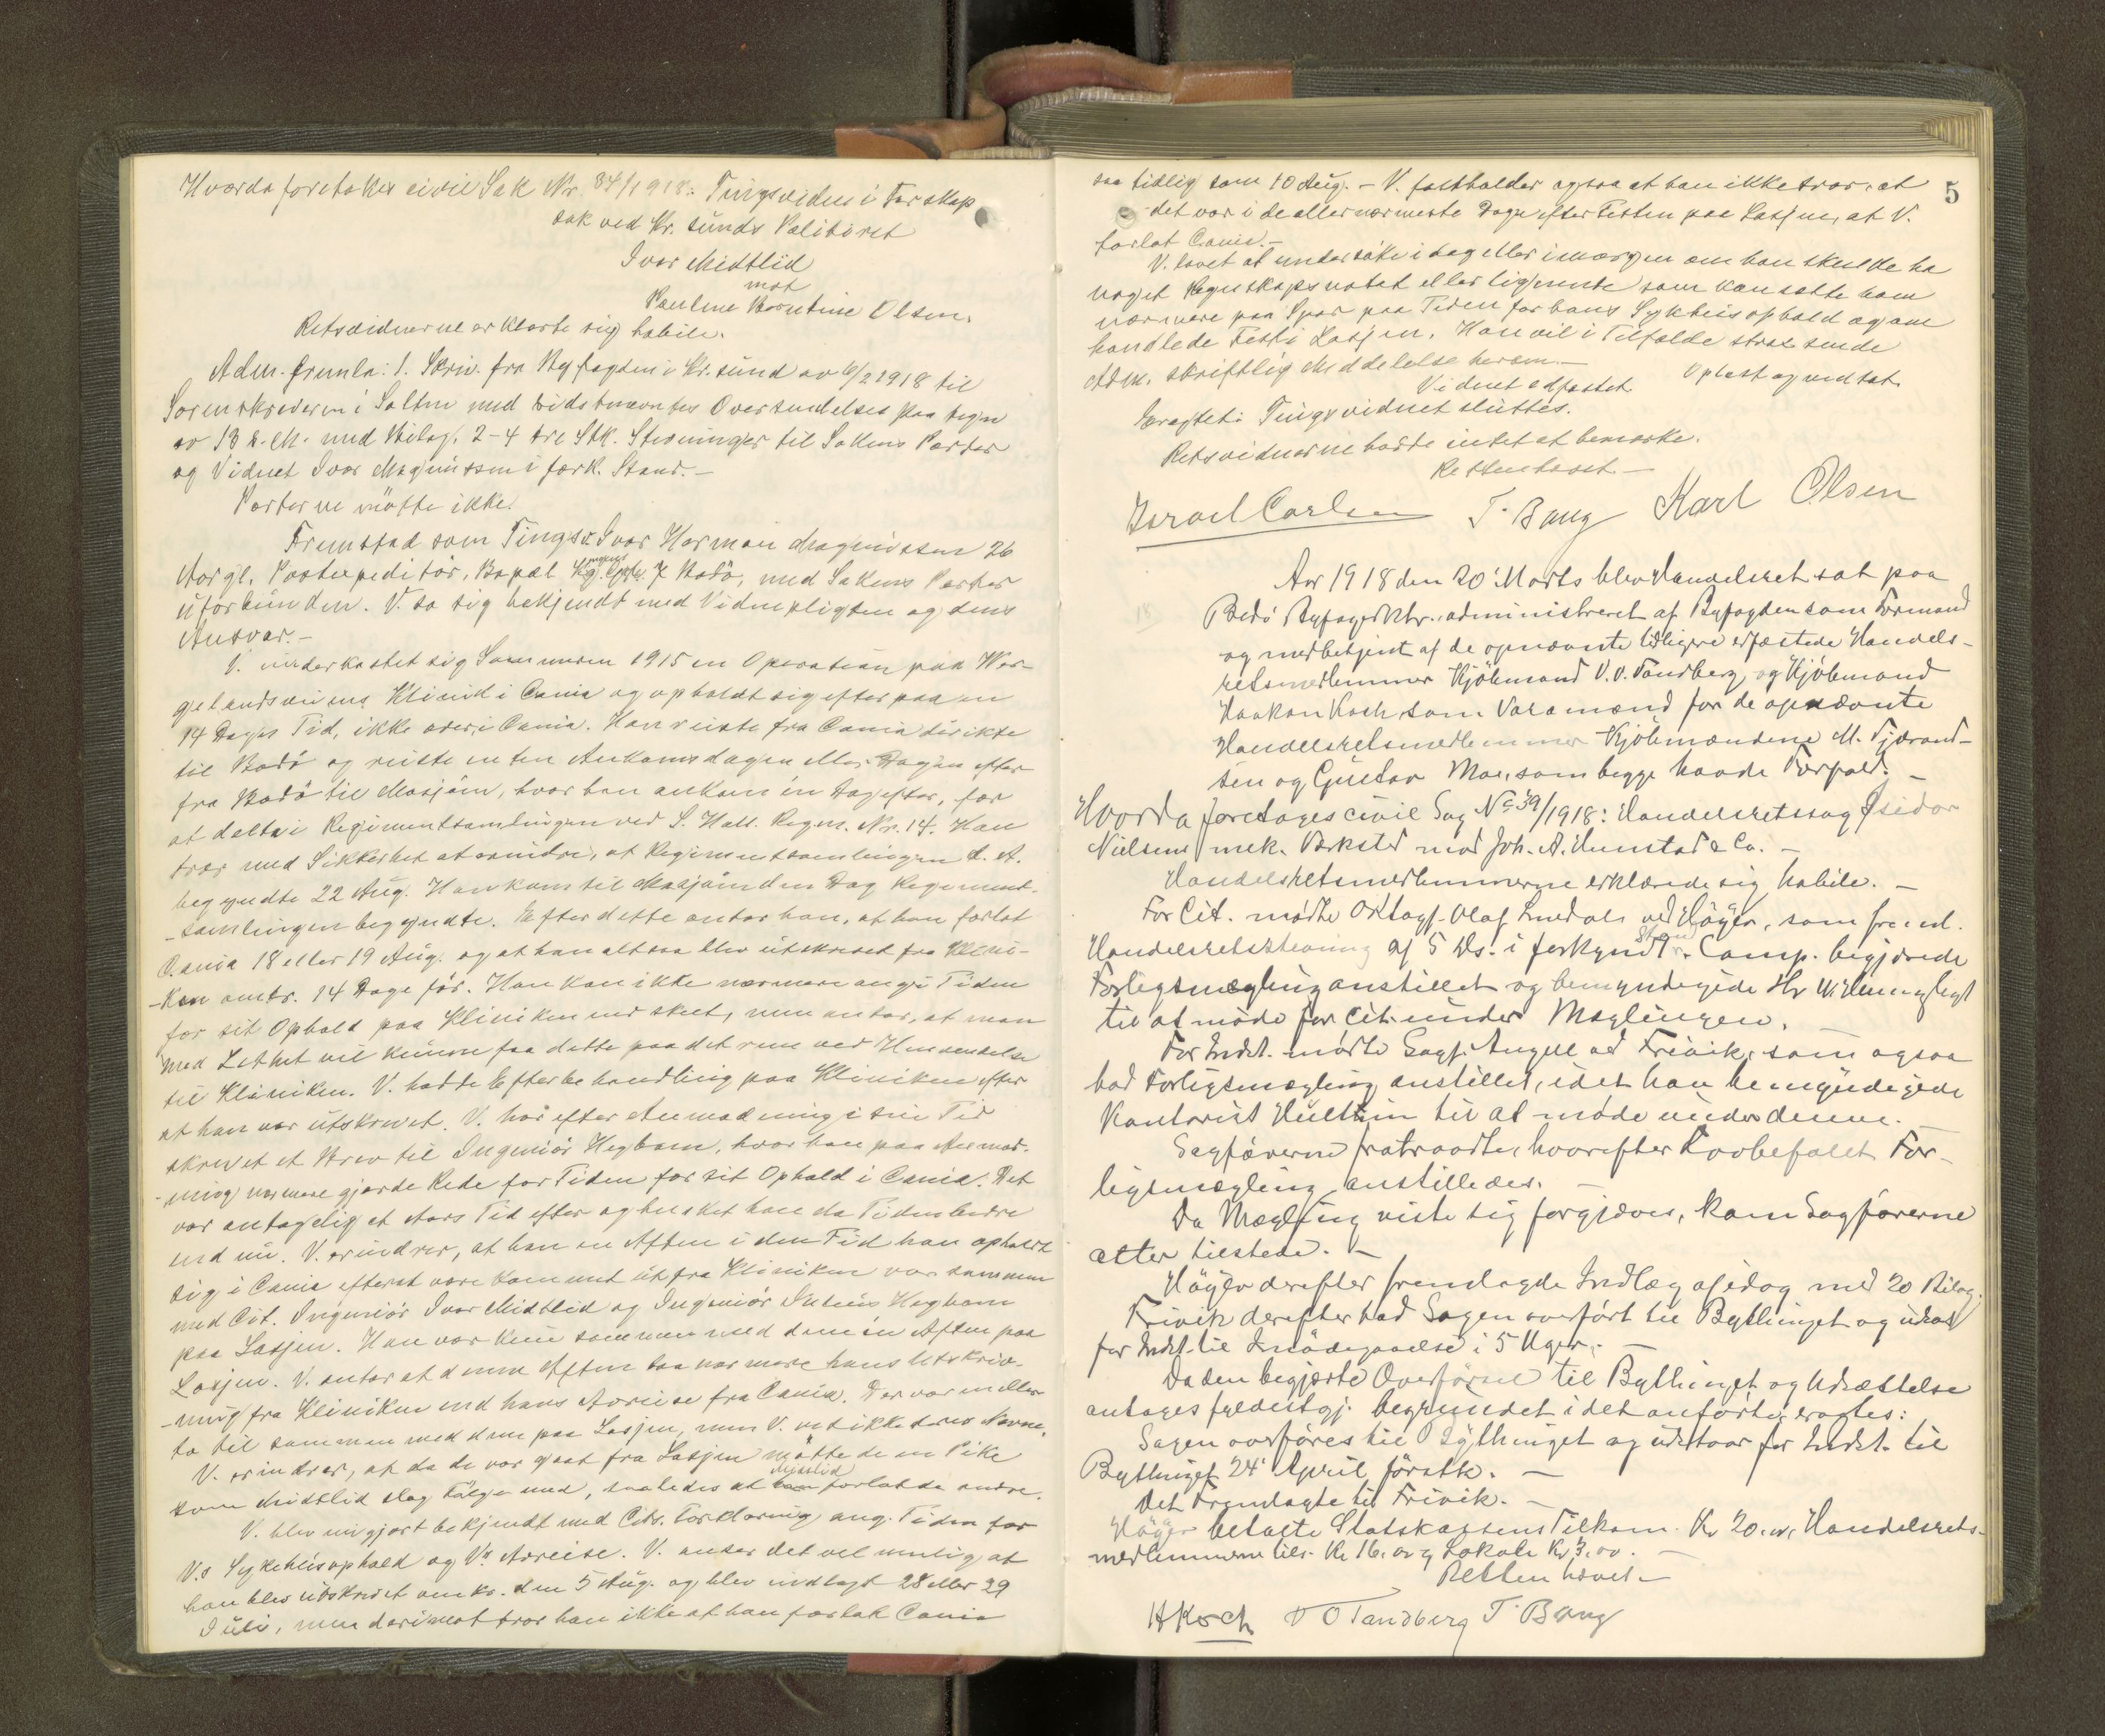 Hvorda foretokes civil Sak Nr. 34/1918: Tingsvidne i Farskap
sak ved Kr. sunds Politiret
Ivar Midtlid
mot
Pauline Berntine Olsen.
Retsvidnerne erklærte sig habile.
Adm. fremla: 1. Skriv. fra Byfogden i Kr. sund av 6/2 1918 til
Sorenskriveren i Salten med sidstnævntes Oversendelses paategn
av 13 s. M. med Bilag. 2-4 tre Stk. Stevninger til Sakens Parter
og Vidnet Ivar Magnussen i fork. Stand.-
Parterne møtte ikke.
Fremstod som Tingsv. Ivar Herman Magnussen 26
Aar gl. Postexpeditør, Bopæl 7 Bodø, med Sakens Parter
uforbunden. V. sa sig bekjendt med Vidnepligten og dens
Ansvar.-
V. underkastet sig Sommeren 1915 en Operation paa Wer-
gelandsveiens Klinik i Cania og opholdt sig efter paa en
14 Dages Tid, ikke over, i Cania. Han reiste fra Cania direkte
til Bodø og reiste enten Ankomsdagen eller Dagen efter
fra Bodø til Mosjøen, hvor han ankom en Dag efter, for
at delta i Regimentsamlingen ved S. Hall. Regm. Nr. 14. Han
tror med Sikkerhet at erindre, at Regimentsamlingen d. A.
begyndte 22 Aug. Han kom til Mosjøen den Dag Regiment-
-samlingen begyndte. Efter dette antar han, at han forlot
Cania 18 eller 19 Aug. og at han altsaa blev utskrevet fra Klini-
-ken omtr. 14 Dage før. Han kan ikke nærmere angi Tiden
for sit Ophold paa Kliniken end skeet, men antar, at man
med Lethet vil kunne faa dette paa det rene ved Henvendelse
til Kliniken. V. hadde Efterbehandling paa Kliniken efter
at han var utskrevet. V. har efter Anmodning i sin Tid
skrevet et Brev til Ingeniør Hegbom, hvor han paa Anmod-
-ning nærmere gjorde Rede for Tiden for sit Ophold i Cania. Det
var antagelig et Aars Tid efter og husket han da Tiden bedre
end nu. V. erindrer, at han en Aften i den Tid han opholdt
sig i Cania efterat være kommet ut fra Kliniken var sammen
med Cit. Ingeniør Ivar Midtlid og Ingeniør Hegbom
paa Losjen. Han var kun sammen med dem én Aften paa
Losjen. V. antar at denne Aften laa nærmere hans Utskriv-
-ning fra Kliniken end hans Avreise fra Cania. Der var en eller
to til sammen med dem paa Losjen, men V. vet ikke deres Navne.
V. erindrer, at da de var gaat fra Losjen møtte de en Pike
Midtlid
som Midtlid slog Følge med, saaledes at han forlot de andre.
V. blev nu gjort bekjendt med Cits. Forklaring ang. Tiden for
V.s Sykehusophold og V.s Avreise. V. anser det vel mulig at
han blev utskrevet omkr. den 5 Aug. og blev indlagt 28 eller 29
Juli, men derimot tror han ikke at han forlot Cania
5
saa tidlig som 10 Aug. - V. fastholder ogsaa at han ikke tror, at
det var i de allernærmeste Dage efter Festen paa Losjen, at V.
forlot Cania.-
V. lovet at undersøke i dag eller imorgen om han skulde ha
noget Regnskapsnotat eller lignende som kan sætte ham
nærmere paa Spor paa Tiden for hans Sykehusophold og om
handlede Fest i Losjen. Han vil i Tilfælde strax sende
Adm. skriftlig Meddelelse herom.-
Oplæst og vedtat.
Vidnet edfæstet.
Eragtet: Tingsvidnet sluttes.
Retsvidnerne hadde intet at bemærke.
Retten hævet.-
Israel Carlsen T. Bang Karl Olsen
Aar 1918 den 20' Marts blev Handelsret sat paa
18
Bodø Byfogedktr. administreret af Byfogden som Formand
og medbetjent af de opnævnte tidligere edfæstede Handels-
retsmedlemmer Kjøbmand V. O. Tandberg og Kjøbmand
Haakon Koch som Varamænd for de opnævnte
Handelsretsmedlemmer Kjøbmændene M. Tjærand-
sen og Gustav Moe, som begge havde Forfald. -
Hvorda foretages civil Sag No 39/1918: Handelsretssag Isidor
Nielsens mek. Værksted mod Joh. A. Humstad & Co. -
Handelsretsmedlemmerne erklærede sig habile. -
For Cit. mødte Oksagf. Olaf ved Høyer, som freml.
Handelsretsstevning af 5 Ds. i forkyndt Stand. Comp. begjærede
Forligsmægling anstillet og bemyndigede Hr
til at møde for Cit. under Mæglingen.
For Indst. mødte Sagf. Angell ved Frivik, som ogsaa
bad Forligsmægling anstillet, idet han bemyndigede
Kontorist Hultin til at møde under denne.-
Sagførerne fratraadte, hvorefter Lovbefalet For-
ligsmægling anstilledes. -
Da Mægling viste sig forgjæves, kom Sagførerne
atter tilstede. -
Høyer derefter fremlagde Indlæg af idag med 20 Bilag.
Frivik derefter bad Sagen overført til Bythinget og udsat
for Indst. til Imødegaaelse i 5 Uger. -
Da den begjærte Overførsel til Bythinget og Udsættelse
antages fyldestgj. begrundet i det anførte, eragtes:
Sagen overføres til Bythinget og udstaar for Indst. til
Bythinget 24' April førstk. -
Det Fremlagte til Frivik. -
Høyer betalte Statskassens Tilkom. Kr 20.00, Handelsrets-
medlemmerne tils. Kr 16.00 og Lokale Kr 3.00. -
Retten hævet.-
HKoch V O Tandberg T. Bang